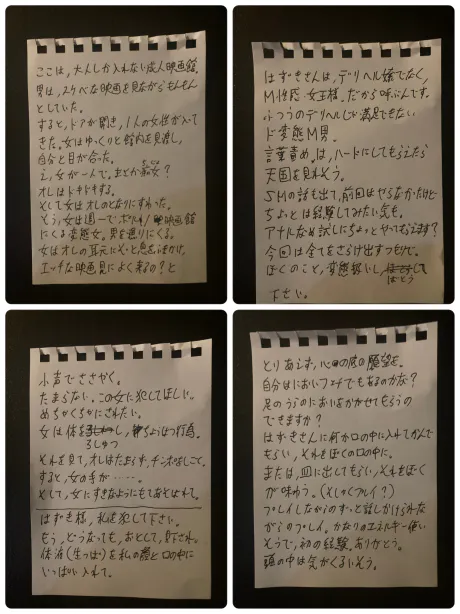 ここは,大人しか入れない成人映画館.
男は,スケベな映画を見ながらもんもん
としていた。
すると,ドアが開き,1人の女性が入って
きた。女はゆっくりと館内を見渡し,
自分と目が合った。
え,女が一人で,まさか痴女?
オレはドキドキする。
そして女はオレのとなりにすわった。
そう,女は週一でポルノ映画館
にくる変態女。男を漁りにくる。
女はオレの耳元にそっと息をふきかけ,
エッチな映画見によく来るの?と
小声でささやく。
たまらない。この女に犯してほしい。
めちゃくちゃにされたい。
女は体を
ろしゅつ
し,ちょうはつ行為。
それを見て,オレはたまらず,チンポをしごく。
すると,女の手が……
そして,女にすきなようにもてあそばれて。
はずき様,私を犯して下さい。
もう,どうなっても,おとして,下され。
体液(生つば)を私の顔と口の中に
いっぱい入れて。
はずきさんは,デリヘル嬢でなく,
M性感・女王様.だから呼ぶんです。
ふつうのデリヘルじゃ満足できない
ド変態M男。
言葉責めは,ハードにしてもらえたら
天国を見れそう。
SMの話も出て,前回はやらなかったけど
ちょっとは経験してみたい気も。
アナルなめ試しにちょっとやってもらえます?
今回は全てをさらけ出すつもりで。
ぼくのこと,変態扱いし,
ばとう
して
下さい。
とりあえず,心の底の願望を。
自分はにおいフェチでもあるのかな?
足のうらのにおいをかがせてもらうの
できますか?
はずきさんに何か口の中に入れてかんで
もらい,それをぼくの口の中に。
または,皿に出してもらい,それをぼく
が味わう。(そしゃくプレイ?)
プレイしながらのずっと話しかけられな
がらのプレイ。かなりのエネルギー使い
そうで,初の経験。ありがとう。
頭の中は気がくるいそう。